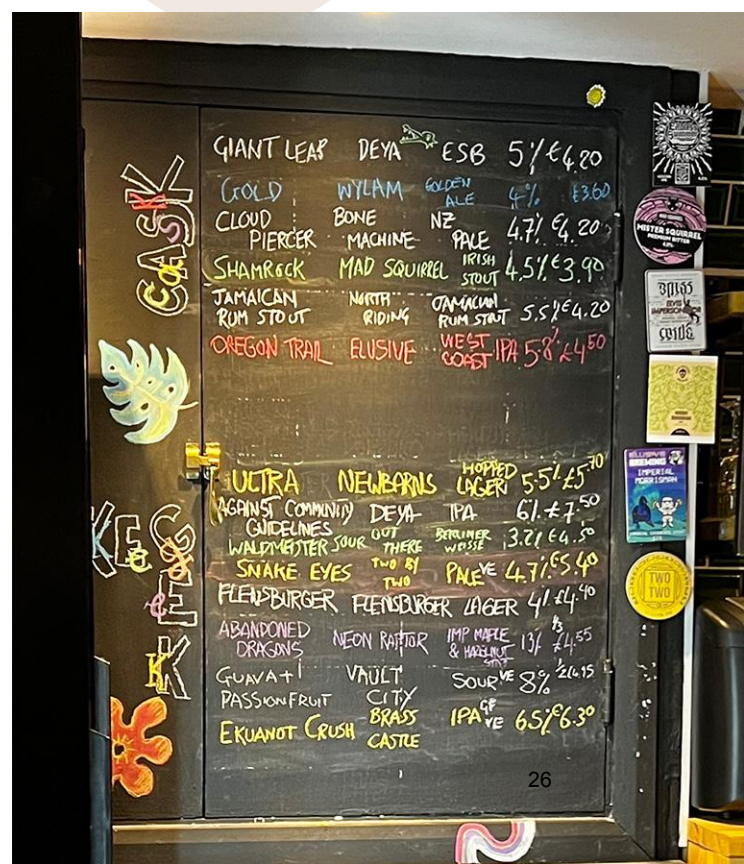 CASK
GIANT LEAP DEYA ESB 5% £4.20
GOLD WYLAM GOLDEN ALE 4% £3.60
CLOUD PIERCER BONE MACHINE NZ PALE 4.7% £4.20
SHAMROCK MAD SQUIRREL IRISH STOUT 4.5% £3.90
JAMAICAN RUM STOUT NORTH RIDING JAMAICAN RUM STOUT 5.5% £4.20
OREGON TRAIL ELUSIVE WEST COAST IPA 5.8% £4.50
KEG
ULTRA NEWBARNS HOPPED LAGER 5.5% £5.70
AGAINST COMMUNITY GUIDELINES DEYA IPA 6% £7.50
WALDMEISTER SOUR OUT THERE BERLINER WEISSE 3.2% £4.50
SNAKE EYES TWO BY TWO PALE VE 4.7% £5.40
FLENSBURGER FLENSBURGER LAGER 4% £4.40
ABANDONED DRAGONS NEON RAPTOR IMP MAPLE & HAZELNUT STOUT 13% 1/3 £4.55
GUAVA + PASSIONFRUIT VAULT CITY SOUR VE 8% 1/2 £4.95
EKUANOT CRUSH BRASS CASTLE IPA GF VE 6.5% £6.30
MISTER SQUIRREL
PREMIUM BITTER
ELVIS
IMPERSONATOR
ELUSIVE
BREWING
IMPERIAL
MORRISMAN
TWO
TWO
26